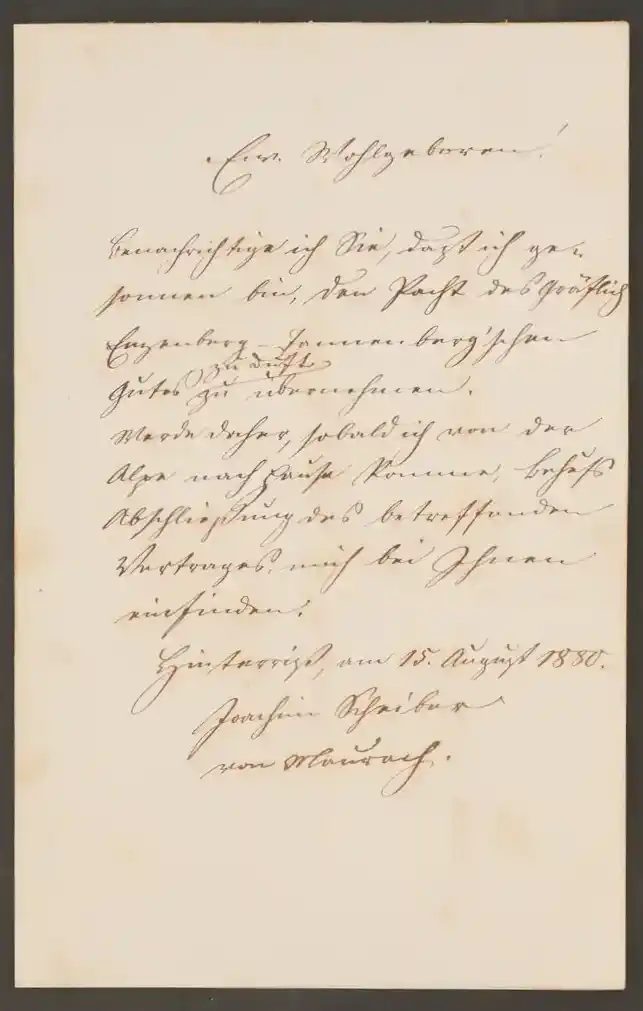 Euer Wohlgeboren!
Benachrichtige ich Sie, daß ich ge-
sonnen bin, den Pacht des Gräflich
Enzenberg-Tannenberg'schen
zu Duft
Gutes zu übernehmen.
Werde daher, sobald ich von der
Alpe nach Hause komme, behufs
Abschließung des betreffenden
Vertrages, mich bei Ihnen
einfinden.
Hinterriß, am 15. August 1880.
Joachim Schreiber
von Maurach.